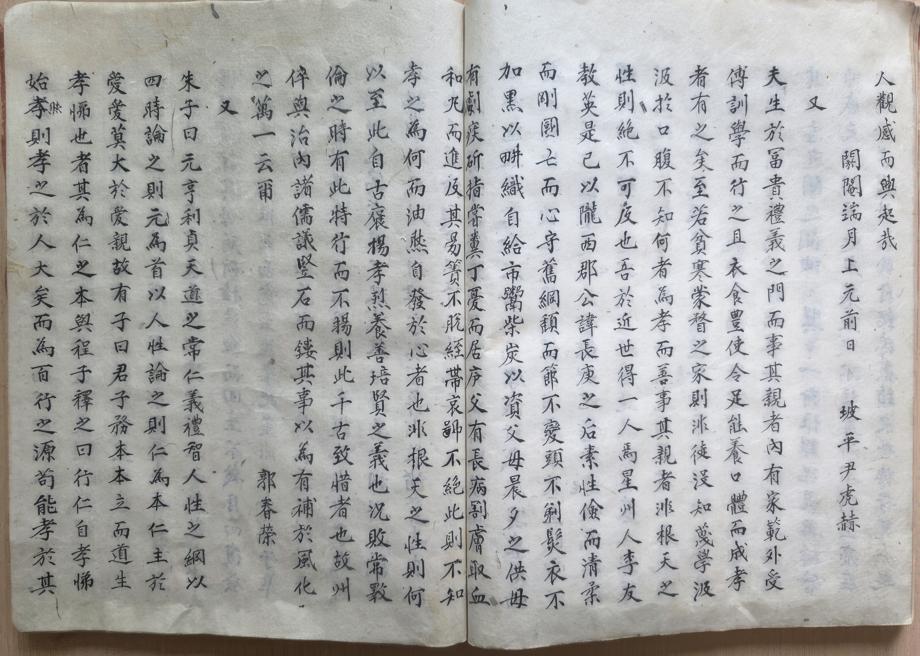 人觀感而興起哉
閼閹端月上元前日 坡平尹虎赫
又
夫生於冨貴禮義之門而事其親者內有家範外受
傅訓學而行之且衣食豊使令足能養口體而成孝
者有之矣至若貧寒蒙瞀之家則非徒沒知蔑學汲
汲於口腹不知何者為孝而善事其親者非根天之
性則絶不可反也吾於近世得一人焉星州人李友
教英是已以隴西郡公諱長庚之后素性儉而清柔
而剛國亡而心守舊綱頹而節不變頭不剃髮衣不
加黑以畊織自給市鬻柴炭以資父母晨夕之供母
有劇疾斫指甞糞丁憂而居庐父有長病割膚取血
和丸而進及其易簀不脫絰帶哀號不絶此則不知
孝之為何而油然自發於心者也非根天之性則何
以至此自古襃揚孝烈養善培賢之義也況敗常斁
倫之時有此特行而不賜則此千古致惜者也故州
倅與治內諸儒議竪石而鏤其事以為有補於風化
之萬一云甭 郭春榮
又
朱子曰元亨利貞天道之常仁義禮智人性之綱以
四時論之則元為首以人性論之則仁為本仁主於
愛愛莫大於愛親故有子曰君子務本本立而道生
孝悌也者其為仁之本與程子釋之曰行仁自孝悌
始然孝則孝之於人大矣而為百行之源苟能孝於其